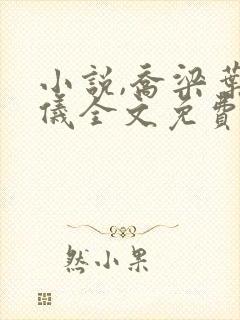 小說,喬梁葉
儀全文免費
然小果